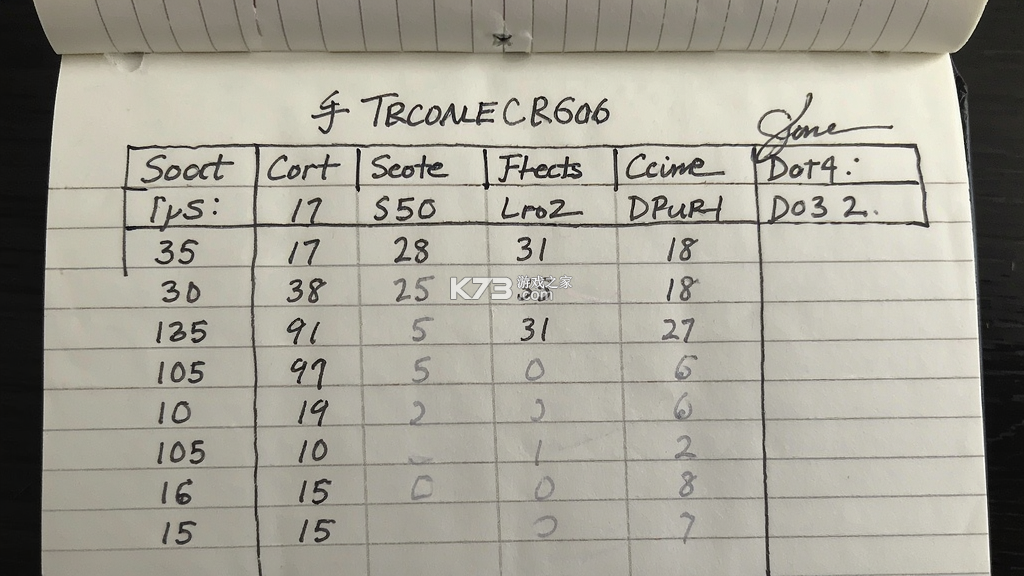 手 TRCONLECR606
Jone
Sooct Cort Scote Ftects Ccime Dot4:
TµS: 17 S50 Lro2 DPUR1 D03 2.
35 17 28 31 18
30 38 25 18
K73 游戏之家
.com
135 91 5 31 27
105 97 5 0 6
10 19 2 2 6
105 10 1 2
16 15 0 0 8
15 15 0 7